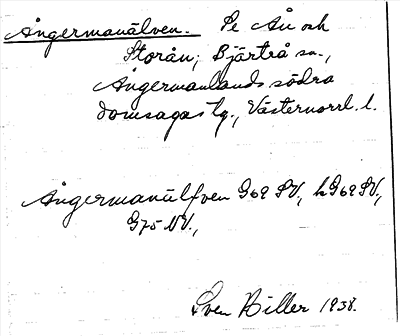 Ångermanälven. Se Ån och
Storån; Bjärtrå sn.,
Ångermanlands södra
domsagas tg., Västernorrl. l.
Ångermanälfven G69 SV, h G69 SV,
G75 NV.,
Sven Biller 1938.